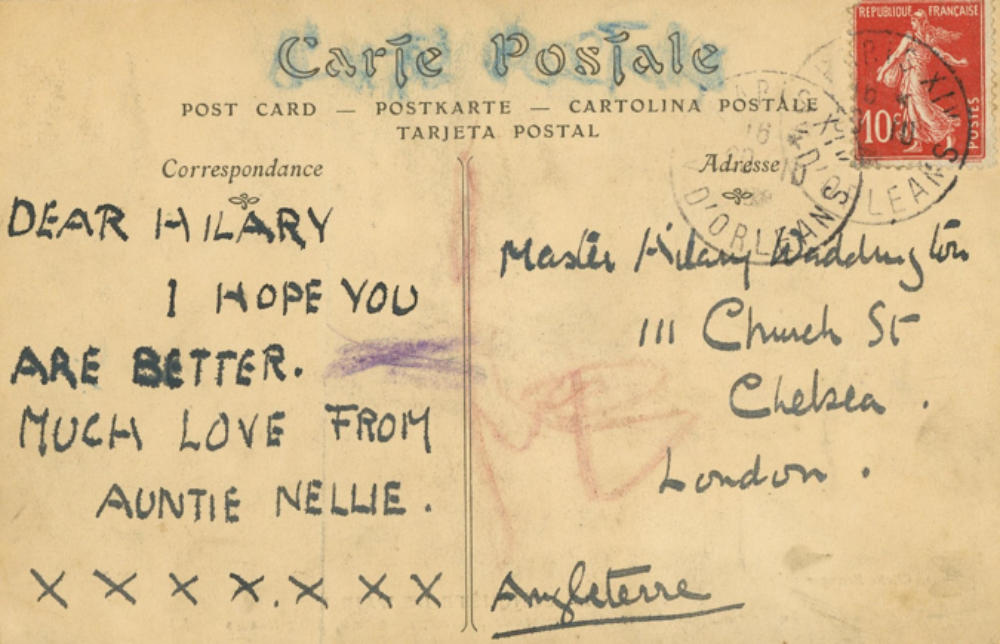 Carte Postale
POST CARD — POSTKARTE — CARTOLINA POSTALE
TARJETA POSTAL
REPUBLIQUE FRANÇAISE
10c
POSTES
PARIS XIV
D'ORLEANS
16
10
PARIS XIV
D'ORLEANS
10
Correspondance
DEAR HILARY
I HOPE YOU
ARE BETTER.
MUCH LOVE FROM
AUNTIE NELLIE.
X X X X. X X X
Adresse
Master Hilary Waddington
111 Church St
Chelsea.
London.
Angleterre